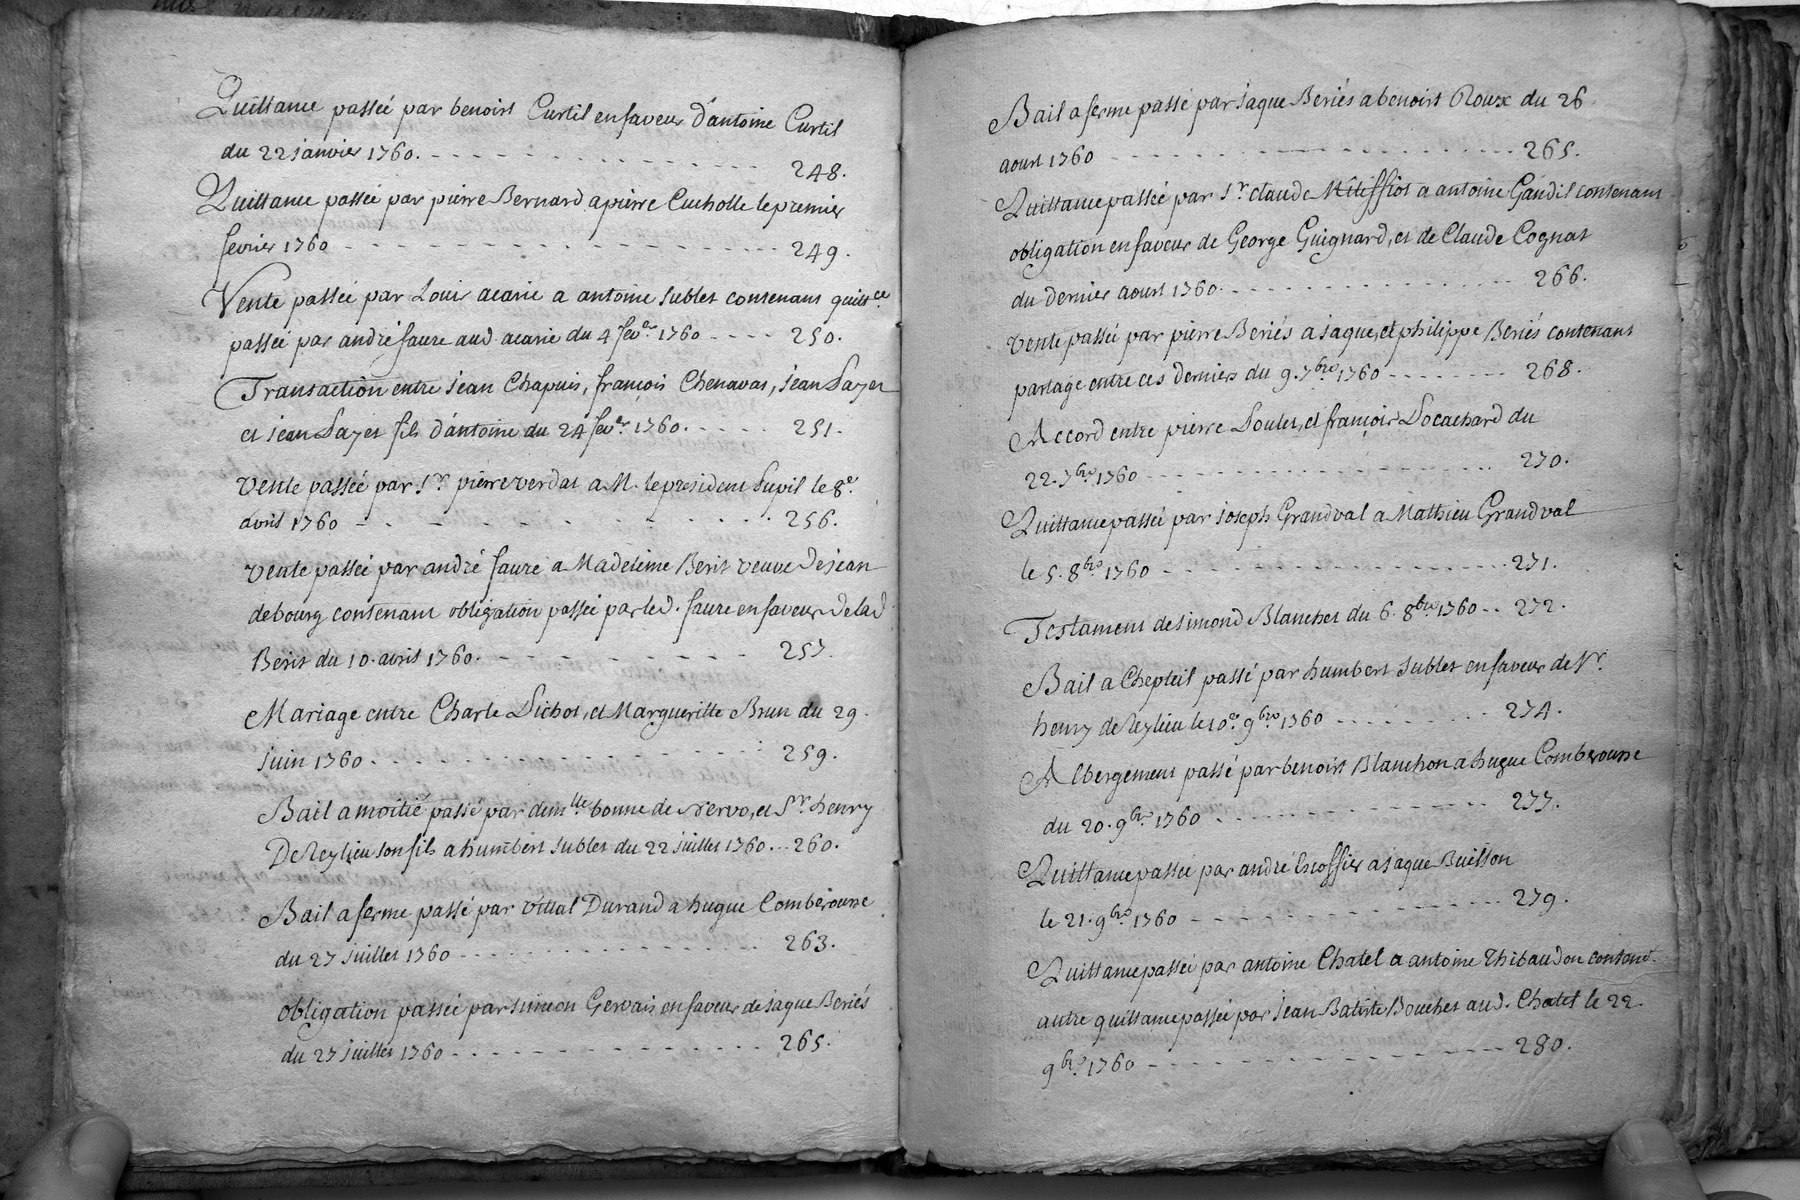 Quittance passée par benoist Curtil en faveur d'antoine Curtil
du 22 janvier 1760. 248.
Quittance passée par pierre Bernard a pierre Cucholle le premier
fevrier 1760 249.
Vente passée par Louis acarie a antoine Sublet contenant quittce
passée par andré faure aud acarie du 4 fevr. 1760 250.
Transaction entre jean Chapuis, françois Chenavas, jean Payet
et jean Payet fils d'antoine du 24 fevr. 1760. 251.
Vente passée par Sr. pierre verdat a M. le president Pupil le 8e.
avril 1760 256.
Vente passée par andré faure a Madeleine Berit veuve de jean
debourg contenant obligation passée par led. faure en faveur de lad
Berit du 10. avril 1760. 257.
Mariage entre Charle Pichot, et Margueritte Brun du 29.
juin 1760. 259.
Bail a moitié passé par demlle bonne de Nervo, et Sr. henry
De Reylieu son fils a humbert Sublet du 22 juillet 1760... 260.
Bail a ferme passé par vittal Durand a hugue Comberousse
du 27 juillet 1760 263.
obligation passée par simeon Gervais en faveur de jaque Beriés
du 27 juillet 1760 265.
Bail a ferme passé par jaque Beriés a benoist Roux du 26
aoust 1760 265.
Quittance passée par Sr. claude a antoine Gandil contenant
obligation en faveur de George Guignard, et de Claude Cognat
du dernier aoust 1760. 266.
Vente passée par pierre Beriés a jaque, et philippe Beriés contenant
partage entre ces derniers du 9. 7bre 1760 268.
Accord entre pierre Poulet, et françois Locachard du
22. 7bre. 1760 270.
Quittance passée par joseph Grandval a Mathieu Grandval
le 5. 8bre. 1760 271.
Testament de simond Blanchet du 6. 8bre 1760.. 272.
Bail a Chepteil passé par humbert Sublet en faveur de Sr.
henry de Reylieu le 10e. 9bre 1760 274.
Albergement passé par benoist Blanchon a hugue Comberousse
du 20. 9bre. 1760 277.
Quittance passée par andré Escoffier a jaque Buisson
le 21. 9bre. 1760 279.
Quittance passée par antoine Chatel a antoine Thibaudon content.
autre quittance passée par jean Batiste Bouchet aud. Chatel le 22.
9bre. 1760 280.